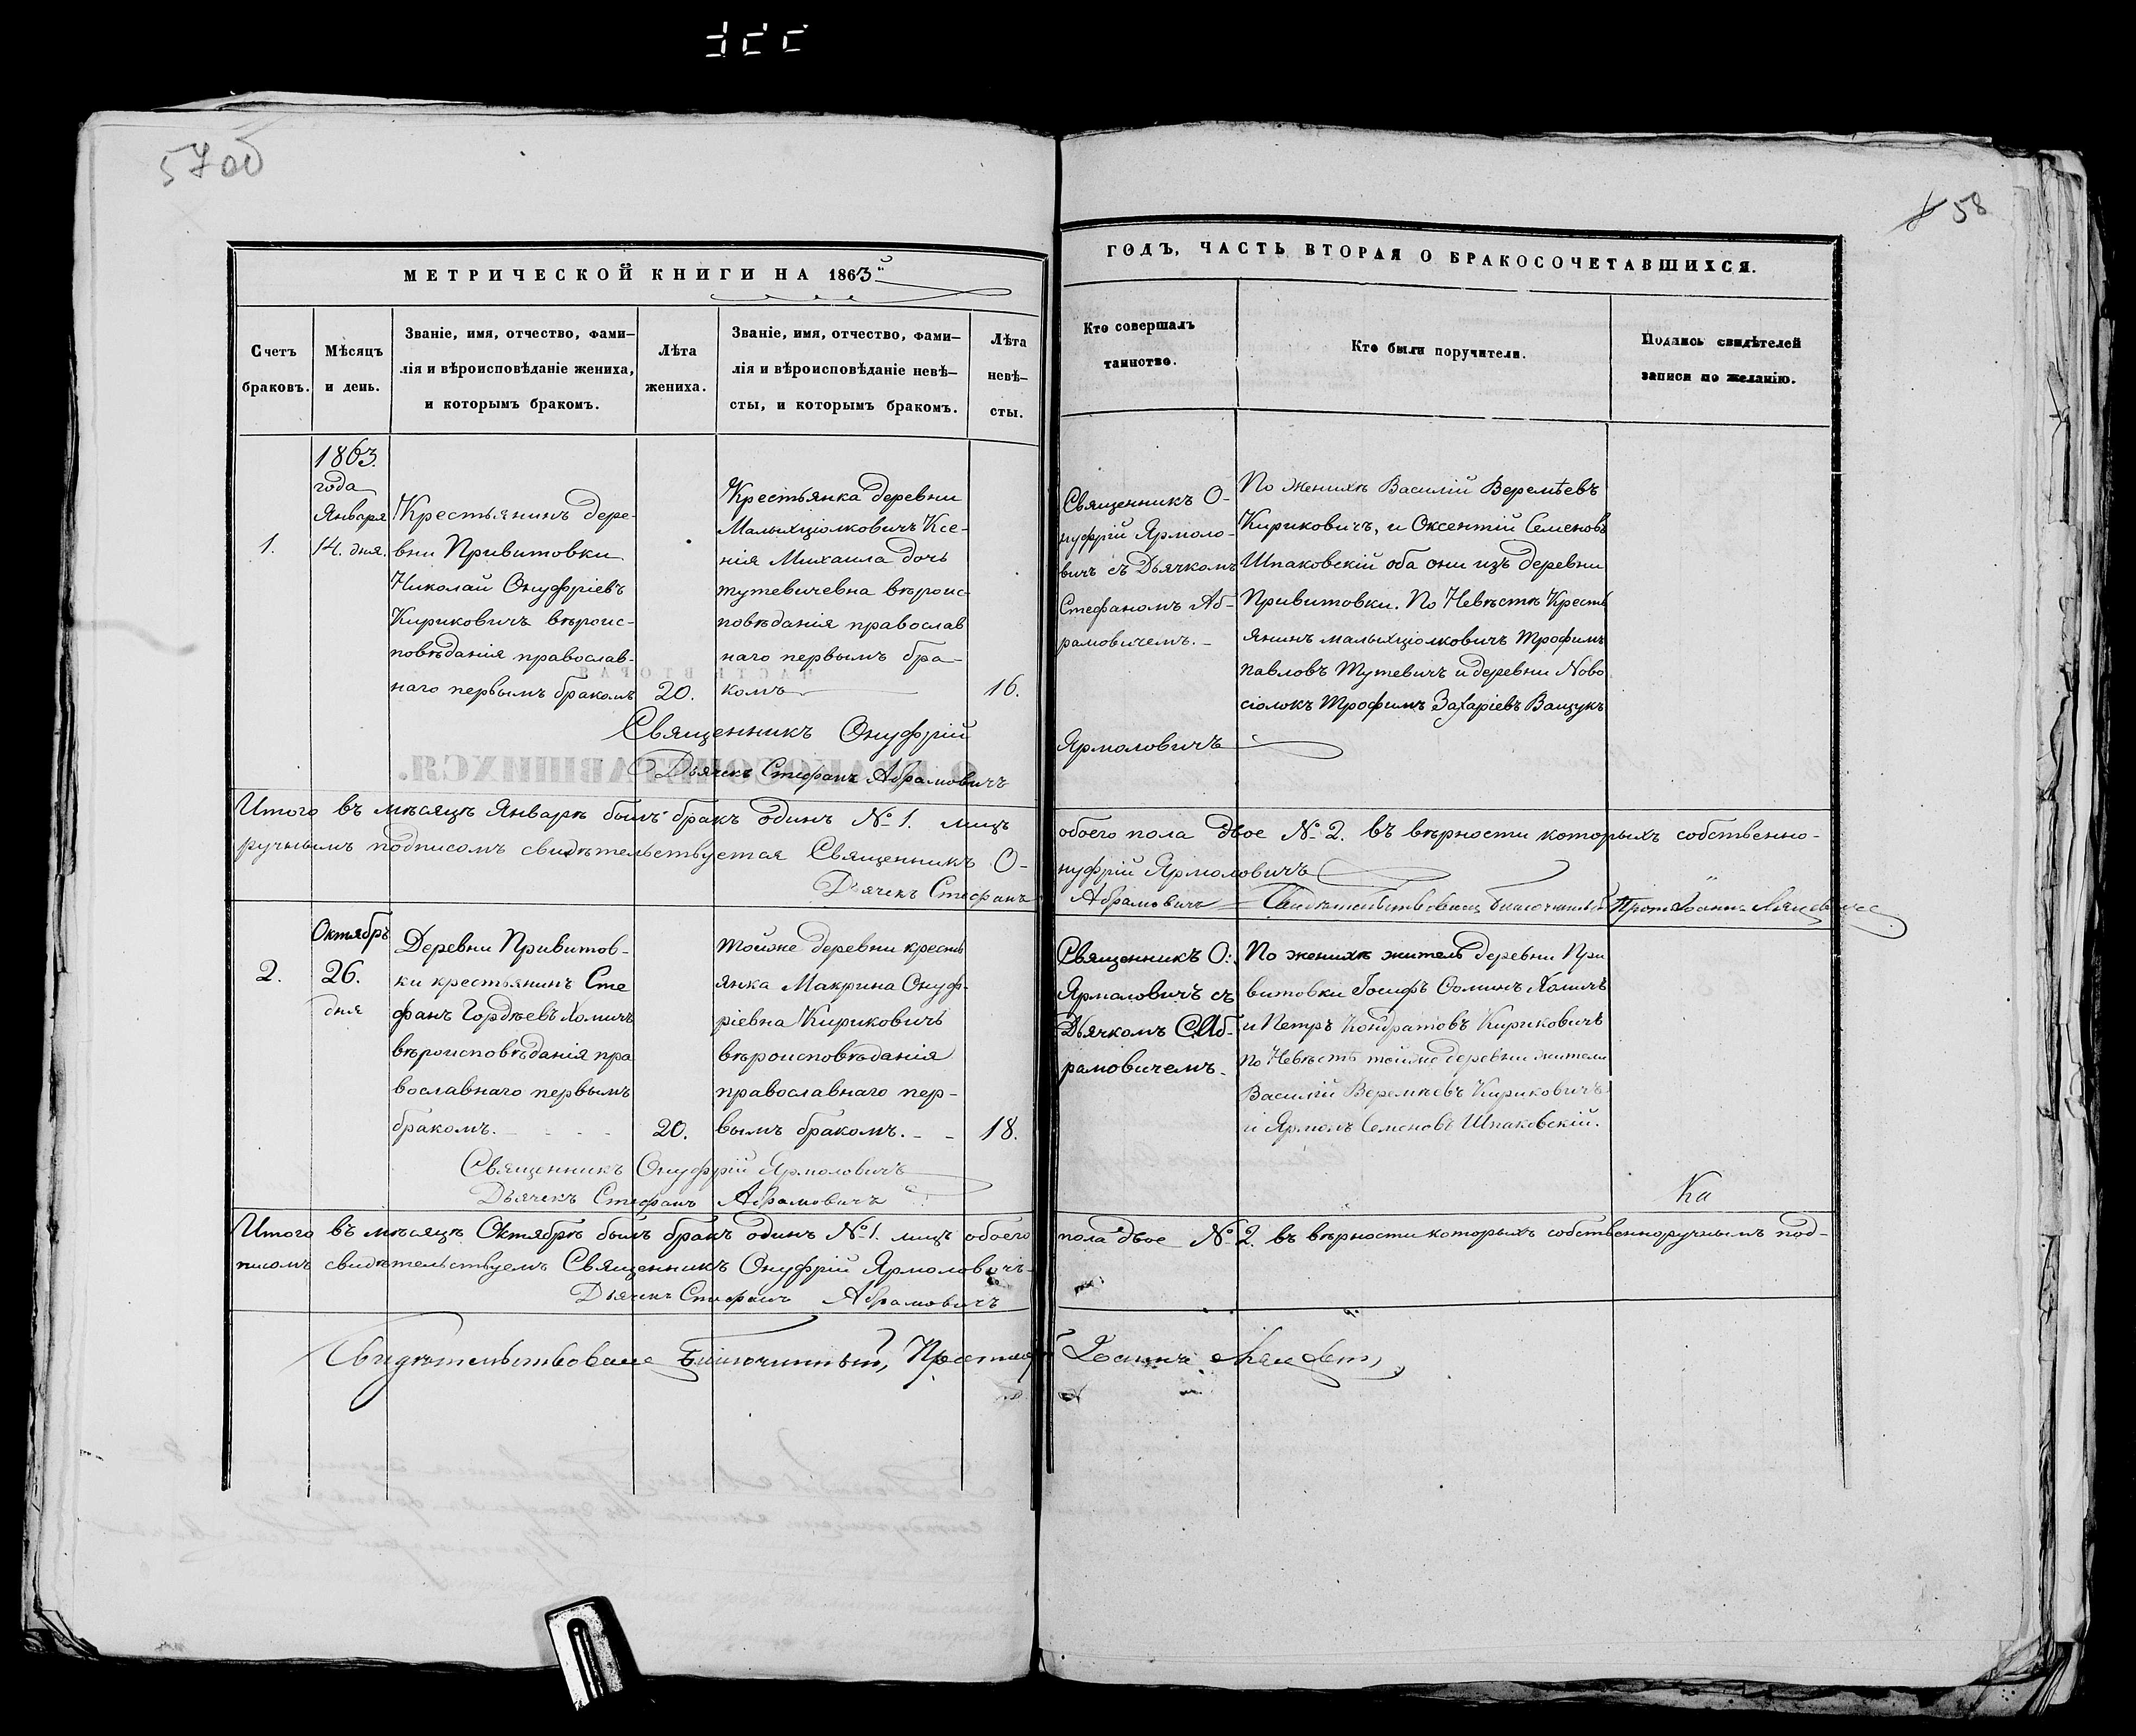 57об
58
МЕТРИЧЕСКОЙ КНИГИ НА 1863й
ГОДЪ, ЧАСТЬ ВТОРАЯ О БРАКОСОЧЕТАВШИХСЯ.
Счетъ
браковъ.
Мѣсяцъ
и день.
Званіе, имя, отчество, фами-
лія и вѣроисповѣданіе жениха,
и которымъ бракомъ.
Лѣта
жениха.
Званіе, имя, отчество, фами-
лія и вѣроисповѣданіе невѣ-
сты, и которымъ бракомъ.
Лѣта
невѣ-
сты.
Кто совершалъ
таинство.
Кто были поручители.
Подпись свидѣтелей
записи по желанію.
1.
1863.
года
Января
14. дня.
Крестьянинъ дере-
вни Привитовки
Николай Онуфріевъ
Кириковичъ вѣроис-
повѣданія православ-
наго первымъ бракомъ
20.
Крестьянка деревни
Малыхціолковичъ Ксе-
нія Михаила дочь
тутевичевна вѣроис-
повѣданія православ
наго первымъ бра-
комъ
16.
Священникъ О-
нуфрій Ярмоло-
вичъ съ Дьячкомъ
Стефаномъ Аб-
рамовичемъ.-
По женихѣ Василій Веремѣевъ
Кириковичъ, и Оксентій Семеновъ
Шпаковскій оба они изъ деревни
Привитовки. По Невѣстѣ Кресть
янинъ малыхціолковичъ Трофимъ
павловъ Тутевичъ и деревни Ново
сіолокъ Трофимъ Захаріевъ Ващукъ
Священникъ Онуфрій Ярмоловичъ
Дьячекъ Стефанъ Абрамовичъ
Итого въ мѣсяцѣ Январѣ былъ бракъ одинъ № 1. лицъ обоего пола двое № 2. въ вѣрности которыхъ собственно-
ручнымъ подписомъ свидѣтельствуется Священникъ О-нуфрій Ярмоловичъ
Дьячекъ Стефанъ Абрамовичъ
2.
Октябрь
26.
дня
Деревни Привитов-
ки крестьянинъ Сте
фанъ Гордѣевъ Хомичъ
вѣроисповѣданія пра
вославнаго первымъ
бракомъ.
20.
тойже деревни кресть
янка Макрина Онуф-
ріевна Кириковичъ
вѣроисповѣданія
православнаго пер-
вымъ бракомъ. - -
18.
Священникъ О:
Ярмоловичъ съ
Дьячкомъ С. Аб-
рамовичемъ.
По женихѣ житель деревни При
витовки Іосифъ Ѳоминъ Хомичъ
и Петръ Кондратовъ Кириковичъ
по Невѣстѣ тойже деревни жители
Василій Веремѣевъ Кириковичъ
и Ярмолъ Семеновъ Шпаковскій.
Священникъ Онуфрій Ярмоловичъ
Дьячекъ Стефанъ Абрамовичъ
Ка
Итого въ мѣсяцѣ Октябрѣ былъ бракъ одинъ № 1. лицъ обоего пола двое № 2. въ вѣрности которыхъ собственноручнымъ под-
писомъ свидѣтельствуемъ Священникъ Онуфрій Ярмоловичъ
Дьячекъ Стефанъ Абрамовичъ
Свидѣтельствовалъ Благочинный, Іоаннъ